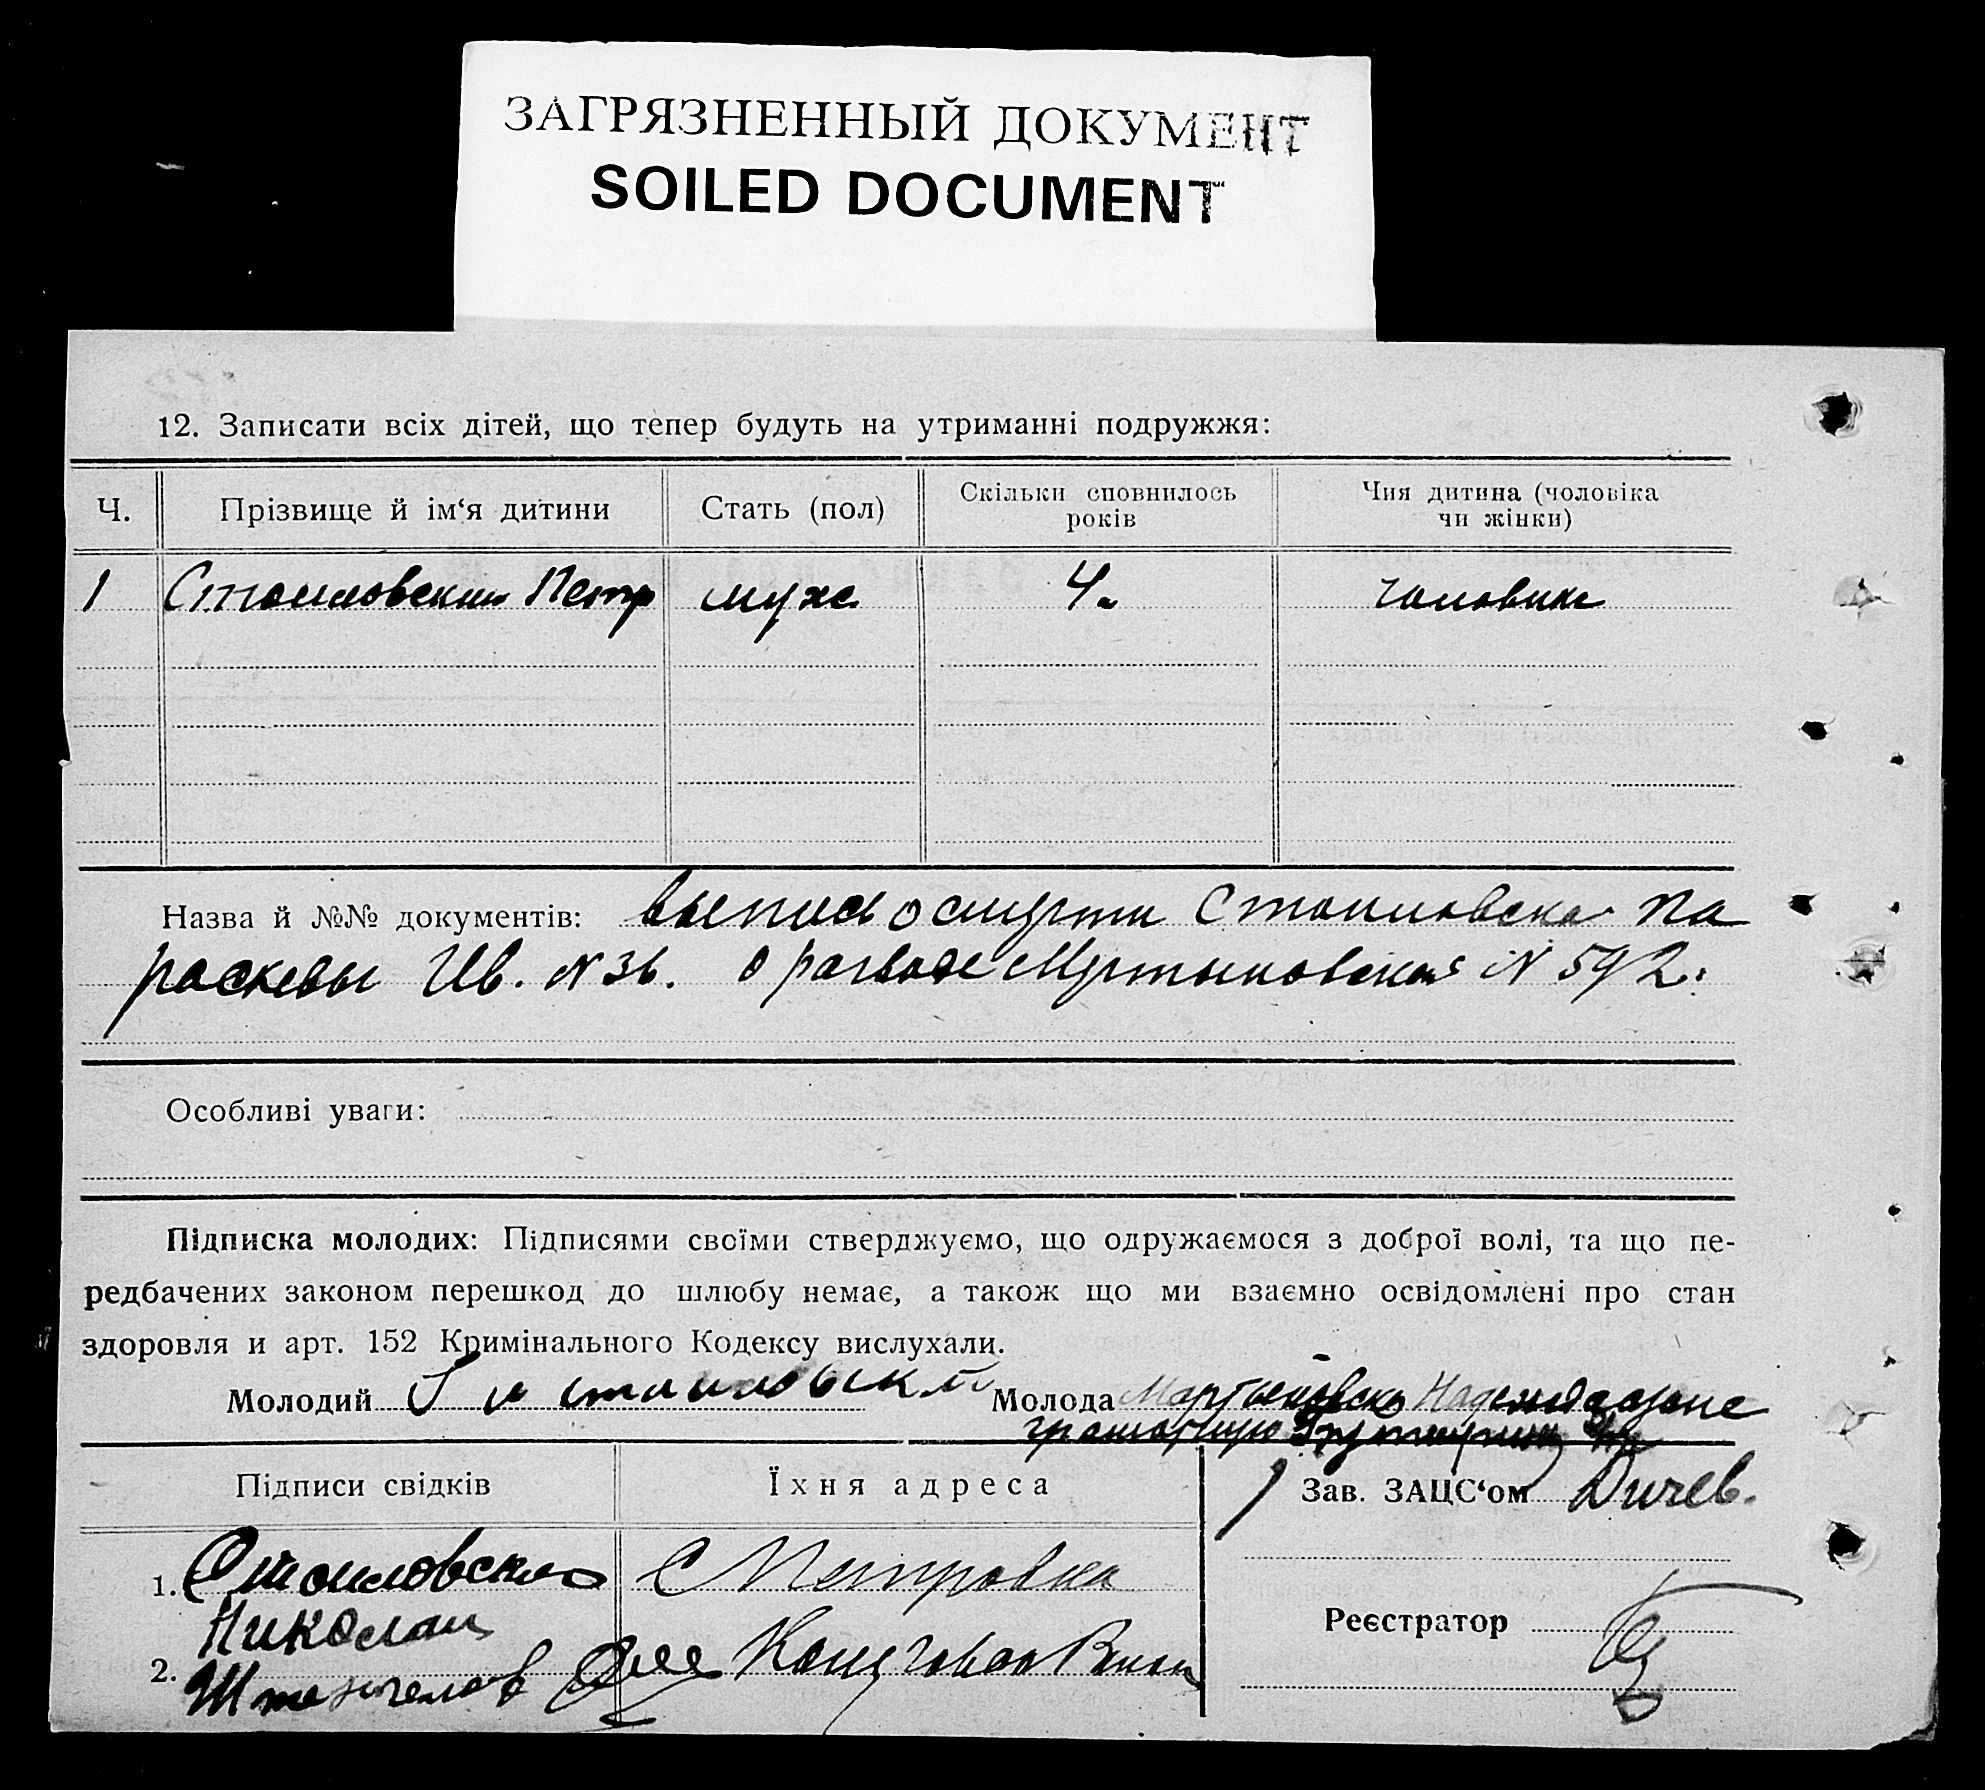 ЗАГРЯЗНЕННЫЙ ДОКУМЕНТ
SOILED DOCUMENT
12. Записати всіх дітей, що тепер будуть на утриманні подружжя:
Ч. Прізвище й ім‘я дитини Стать (пол) Скільки сповнилось років Чия дитина (чоловіка чи жінки)
1 Стоиловский Петр муж 4
Назва й №№ документів: выпись о смерти Стоиловской Па
раскевы Ив. N 36. о разводе N 592.
Особливі уваги:
Підписка молодих: Підписями своїми стверджуємо, що одружаємося з доброї волі, та що пе-
редбачених законом перешкод до шлюбу немає, а також що ми взаємно освідомлені про стан
здоровля и арт. 152 Кримінального Кодексу вислухали.
Молодий Молода
Підписи свідків Їхня адреса Зав. ЗАЦС‘ом Дичев.
1. Стоиловский С Петровка
Николай
Реєстратор
2.